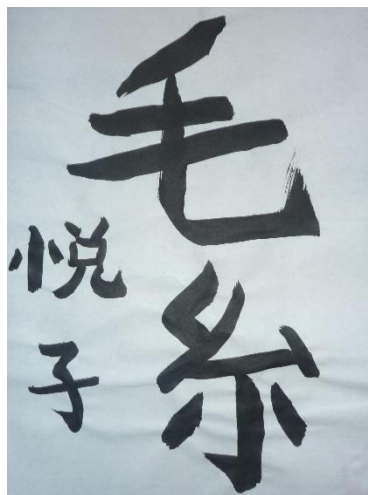 毛糸
悦子